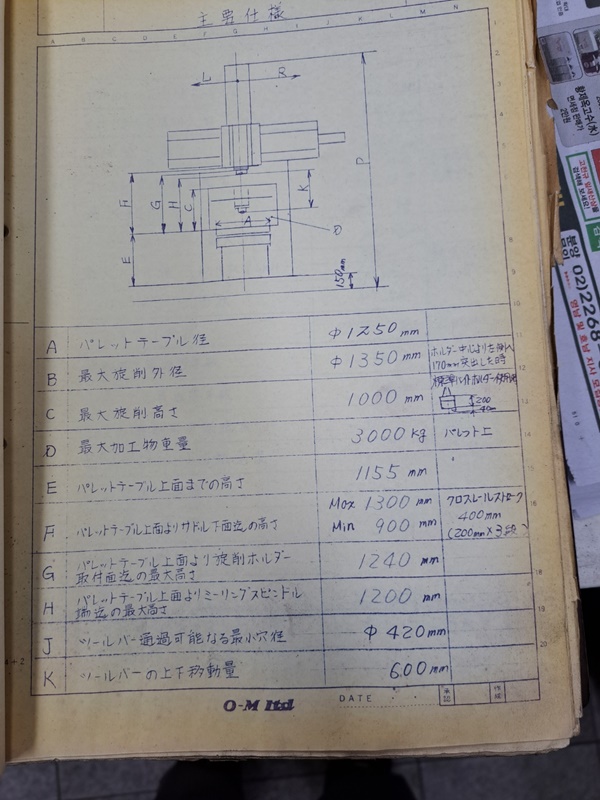 主要仕様
A B C D E F G H I J K L M N
L R
P
F G H C K
A
D
E
150mm
A パレットテーブル径 φ1250mm
B 最大旋削外径 φ1350mm ホルダー中心より左側へ
170mm突出した時
C 最大旋削高さ 1000mm 標準バイトホルダー使用時
200
D 最大加工物重量 3000kg パレット上
E パレットテーブル上面までの高さ 1155mm
F パレットテーブル上面よりサドル下面迄の高さ Max 1300mm
Min 900mm
クロスレールストローク
400mm
(200mm×3段)
G パレットテーブル上面より旋削ホルダー
取付面迄の最大高さ 1240mm
H パレットテーブル上面よりミーリングスピンドル
端迄の最大高さ 1200mm
J ツールバー通過可能なる最小穴径 φ420mm
K ツールバーの上下移動量 600mm
O-M ltd
DATE
황제옥고수(水)
면세점 판매가
2만원
분양 02)2268
영남 및 호남 지사 모집